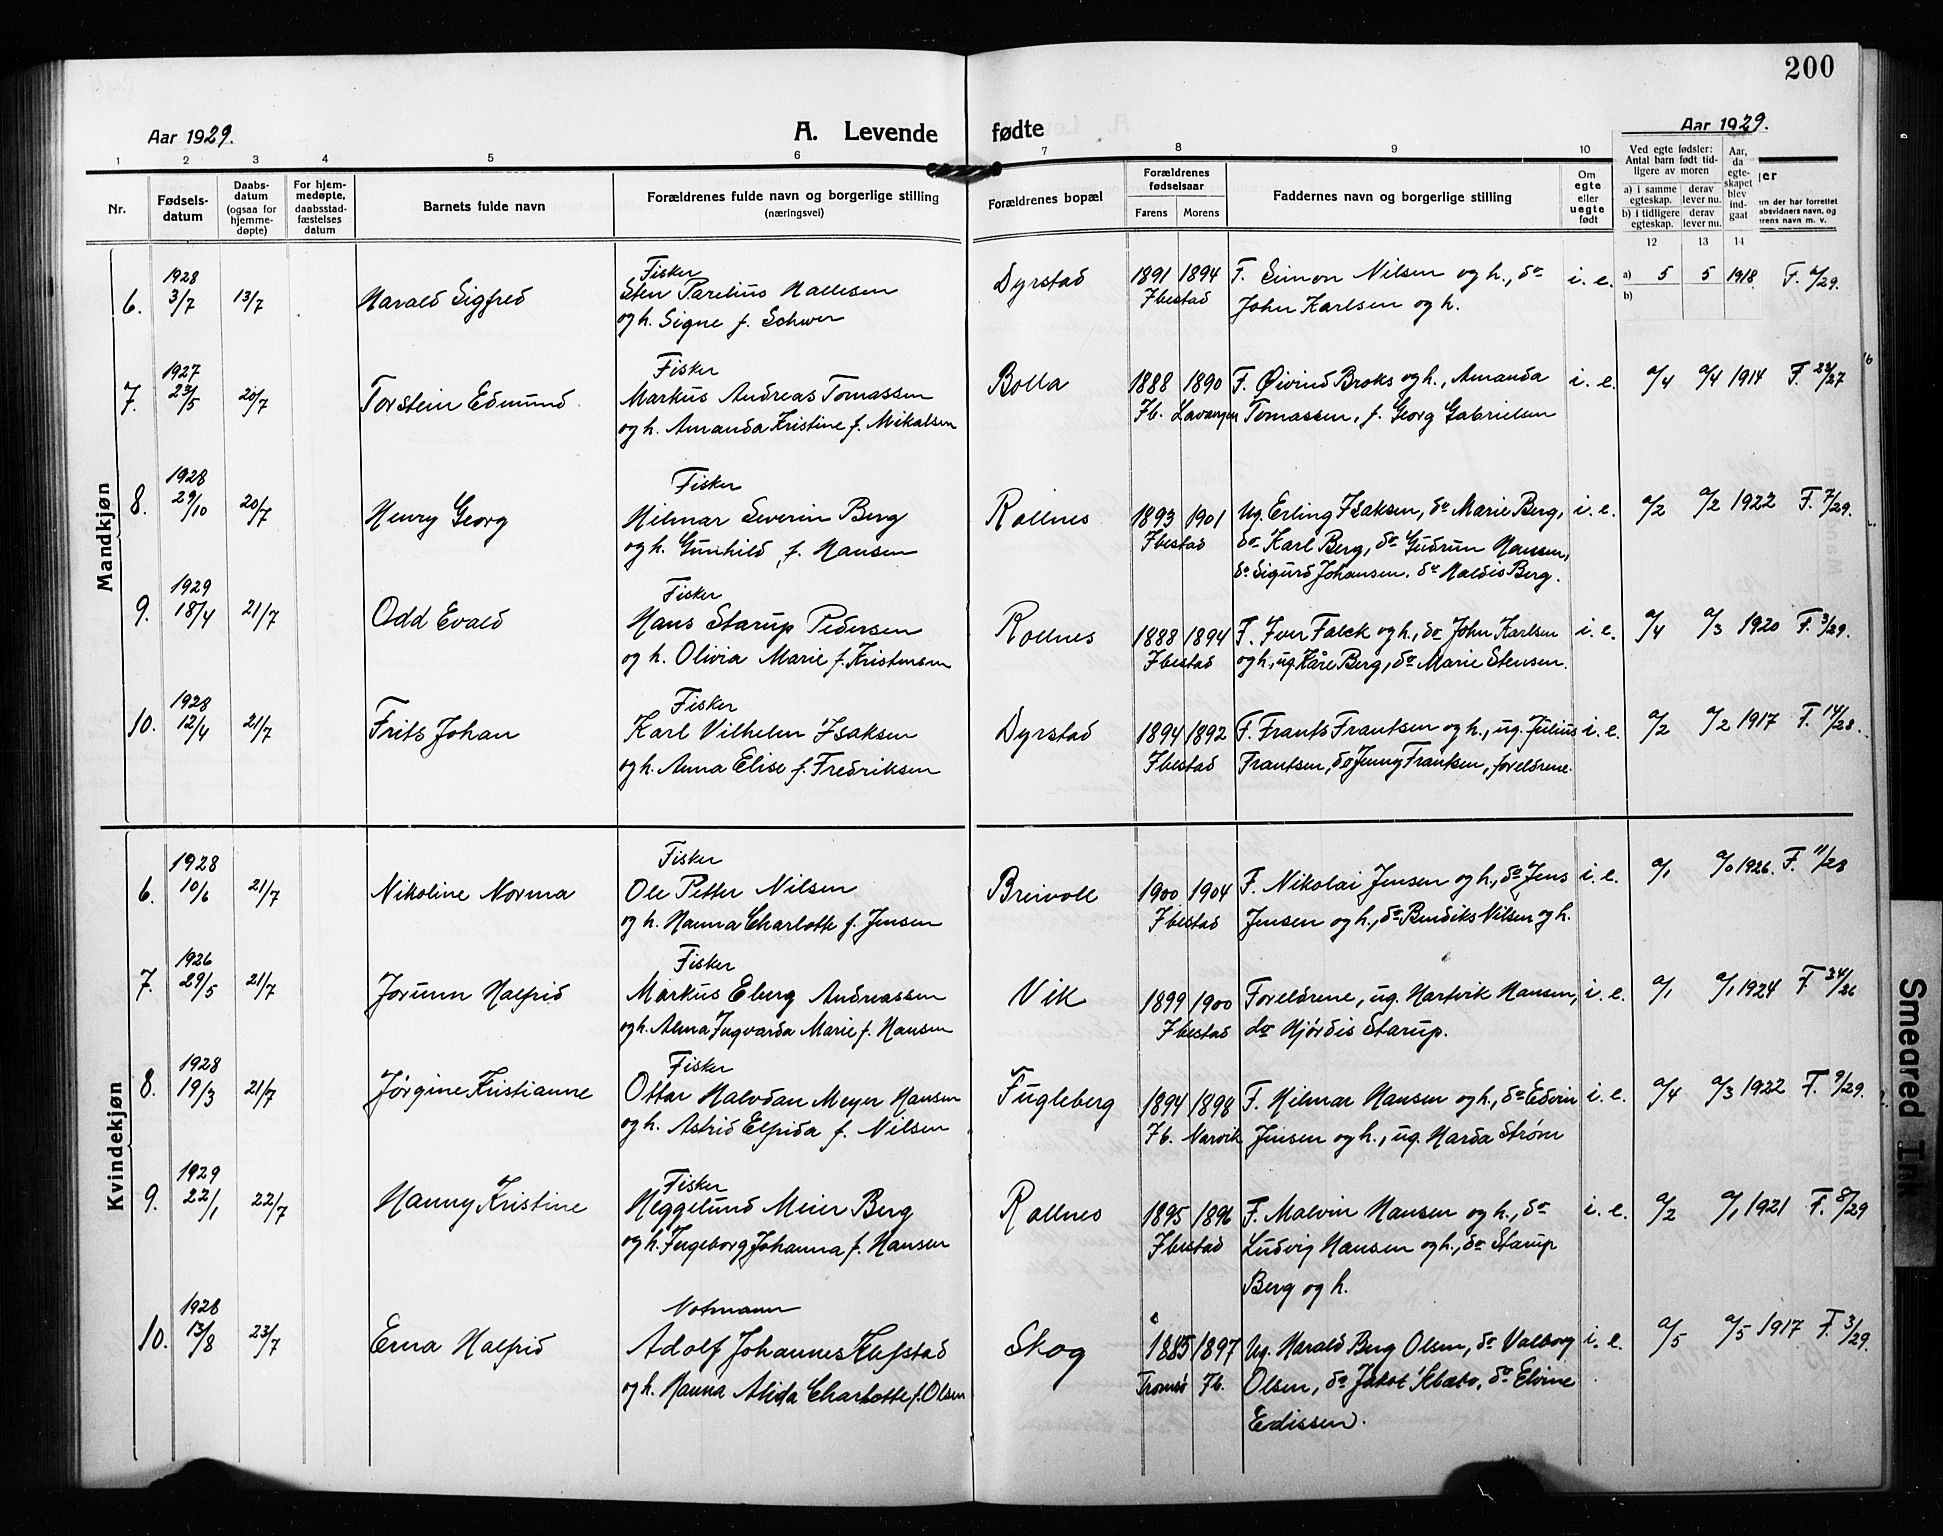 200
Aar 1929.
A. Levende fødte
Aar 1929.
1 2 3 4 5 6 7 8 9 10
Nr.
Fødsels-
datum
Daabs-
datum
(ogsaa for
hjemme-
døpte)
For hjem-
medøpte,
daabsstad-
fæstelses
datum
Barnets fulde navn
Forældrenes fulde navn og borgerlige stilling
(næringsvei)
Forældrenes bopæl
Forældrenes
fødselsaar
Farens Morens
Faddernes navn og borgerlige stilling
Om
egte
eller
uegte
født
Ved egte fødsler:
Antal barn født tid-
ligere av moren
a) i samme egteskap.
derav lever nu.
b) i tidligere egteskap.
derav lever nu.
Aar,
da
egte-
skapet
blev
ind-
gaat
12 13 14
Mandkjøn
6. 1928 3/7 13/7 Harald Sigfred
Fisker
Sten Parelius Hallesen
og h. Signe f. Schwer
Dyrstad 1891 1894 Ibestad
F. Simon Nilsen og h., do
John Karlsen og h.
i. e. a) 5 5 1918
b)
7. 1927 23/5 20/7 Torstein Edmund
Fisker
Markus Andreas Tomassen
og h. Amanda Kristine f. Mikalsen
Bolla 1888 1890 Ib. Lavangen
F. Øivind Broks og h., Amanda
Tomassen, f. Georg Gabrielsen
i. e. a/4 a/4 1914 F. 24/27
8. 1928 29/10 20/7 Henry Georg
Fisker
Hilmar Severin Berg
og h. Gunhild f. Hansen
Rollnes 1893 1901 Ibestad
Ug. Erling Isaksen, do Marie Berg,
do Karl Berg, do Gudrun Hansen,
do Sigurd Johansen. do Haldis Berg.
i. e. a/2 a/2 1922 F. 7/29.
9. 1929 18/4 21/7 Odd Evald
Fisker
Hans Starup Pedersen
og h. Olivia Marie f. Kristensen
Rollnes 1888 1894 Ibestad
F. Iver Falck og h., do John Karlsen
og h., ug. Kåre Berg, do Marie Stensen.
i. e. a/4 a/3 1920 F. 3/29.
10. 1928 12/4 21/7 Frits Johan
Fisker
Karl Vilhelm Isaksen
og h. Anna Elise f. Fredriksen
Dyrstad 1894 1892 Ibestad
F. Frants Frantsen og h., ug. Julius
Frantsen, do Jenny Frantsen, foreldrene.
i. e. a/2 a/2 1917 F. 14/28.
Kvindekjøn
6. 1928 10/6 21/7 Nikoline Norma
Fisker
Ole Petter Nilsen
og h. Hanna Charlotte f. Jensen
Breivoll 1900 1904 Ibestad
F. Nikolai Jensen og h., do Jens
Jensen og h., do Bendiks Nilsen og h.
i. e. a/1 a/0 1926. F. 11/28
7. 1926 29/5 21/7 Jorunn Halfrid
Fisker
Markus Eberg Andreassen
og h. Alma Ingvarda Marie f. Hansen
Vik 1899 1900 Ibestad
Foreldrene, ug. Hartvik Hansen,
do Hjørdis Starup.
i. e. a/1 a/1 1924 F. 34/26
8. 1928 19/3 21/7 Jørgine Kristianne
Fisker
Ottar Halvdan Meyer Hansen
og h. Astrid Elfrida f. Nilsen
Fugleberg 1894 1898 Ib. Narvik
F. Hilmar Hansen og h., do Edvin
Jensen og h., ug. Harda Strøm
i. e. a/4 a/3 1922 F. 9/29.
9. 1929 22/1 22/7 Hanny Kristine
Fisker
Heggelund Meier Berg
og h. Ingeborg Johanna f. Hansen
Rollnes 1895 1896 Ibestad
F. Malvin Hansen og h., do
Ludvig Hansen og h., do Starup
Berg og h.
i. e. a/2 a/1 1921 F. 8/29
10. 1928 13/8 23/7 Erna Halfrid
Notmann
Adolf Johannes Klefstad
og h. Hanna Alida Charlotte f. Olsen
Skog 1885 1897 Tromsø Ib.
Ug. Harald Berg Olsen, do Valborg
Olsen, do Jakob Klæbo, do Elvine
Edissen.
i. e. a/5 a/5 1917 F. 3/29.
Smeared Ink